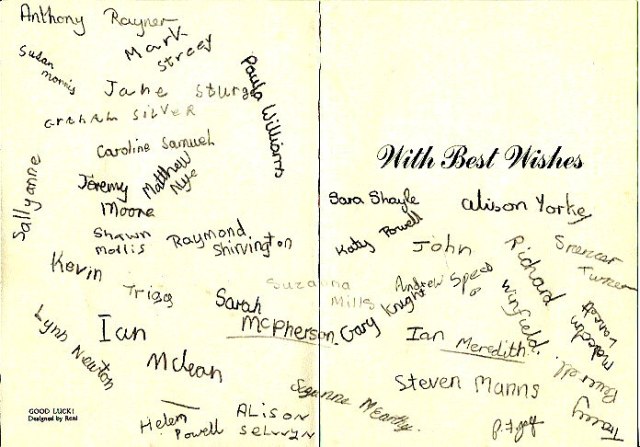 Anthony Rayner
Mark
Streey
Susan
morris
Jane Sturge
GRAHAM SILVER
Paula Williams
Caroline Samuel
Sallyanne
Jeremy
Moore
Matthew
Nye
Shawn
Mollis
Raymond
Shirvington
Kevin
Triggs
Sarah
McPherson.
Lynn
Newton
Ian
Mclean
GOOD LUCK!
Designed by Real
Helen
Powell
ALISON
SELWYN
With Best Wishes
Sara Shayle
alison Yorkey
Katy Powell
John
Richard
Winfield.
Spencer
Turner
Suzanna
Mills
Andrew Speed
Gary Knight
Ian Meredith
Malcolm
Steven Manns
Suzanne
Tracey